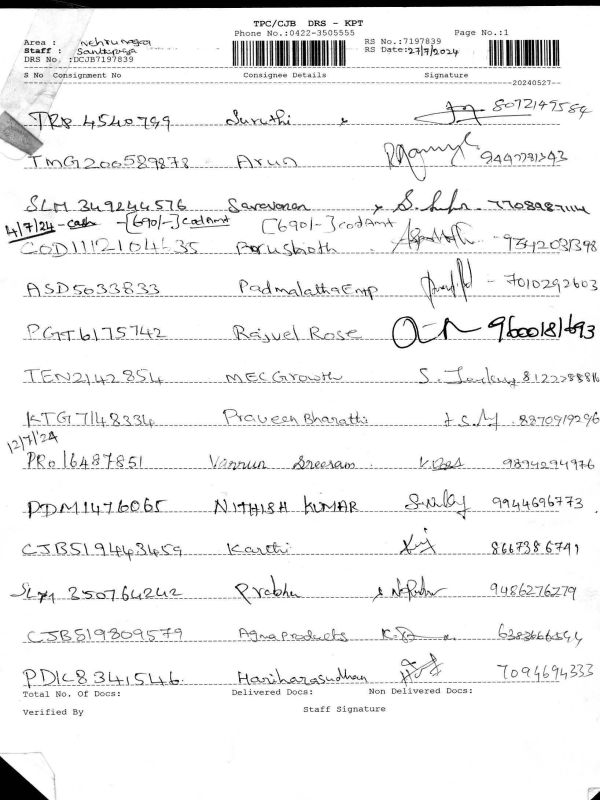 TPC/CJB DRS - KPT
Phone No.:0422-3505555 Page No.:1
Area : Nehru nagar RS No.:7197839
Staff : RS Date: 27/7/2024
DRS No. :DCJB7197839
S No Consignment No Consignee Details Signature
20240527
4540799 Suruthi 8072149584
TMG200589878 Arun
SLM 349244576 Saravanan
4/7/24 - cash -[690/-] cod Amt [690/-] cod Amt
COD1112104635
ASD5033833 Padmalatha Entp 7010292603
PGT6175742 Rajvel Rose 9600181693
TEN2142854 MEC Growth
KTG7148334 Praveen Bharathi 8870919296
12/7/24
PRO16487851 Varrun Sreeram 9894294976
PDM1476065 NITHISH KUMAR 9944696773
CJB519443459 Karthi 8667386791
SLM 350764242 Prabhu 9486276279
CJB519809579 Agna Products
PDK8341546 Hariharasudhan 7094694333
Total No. Of Docs: Delivered Docs: Non Delivered Docs:
Verified By Staff Signature